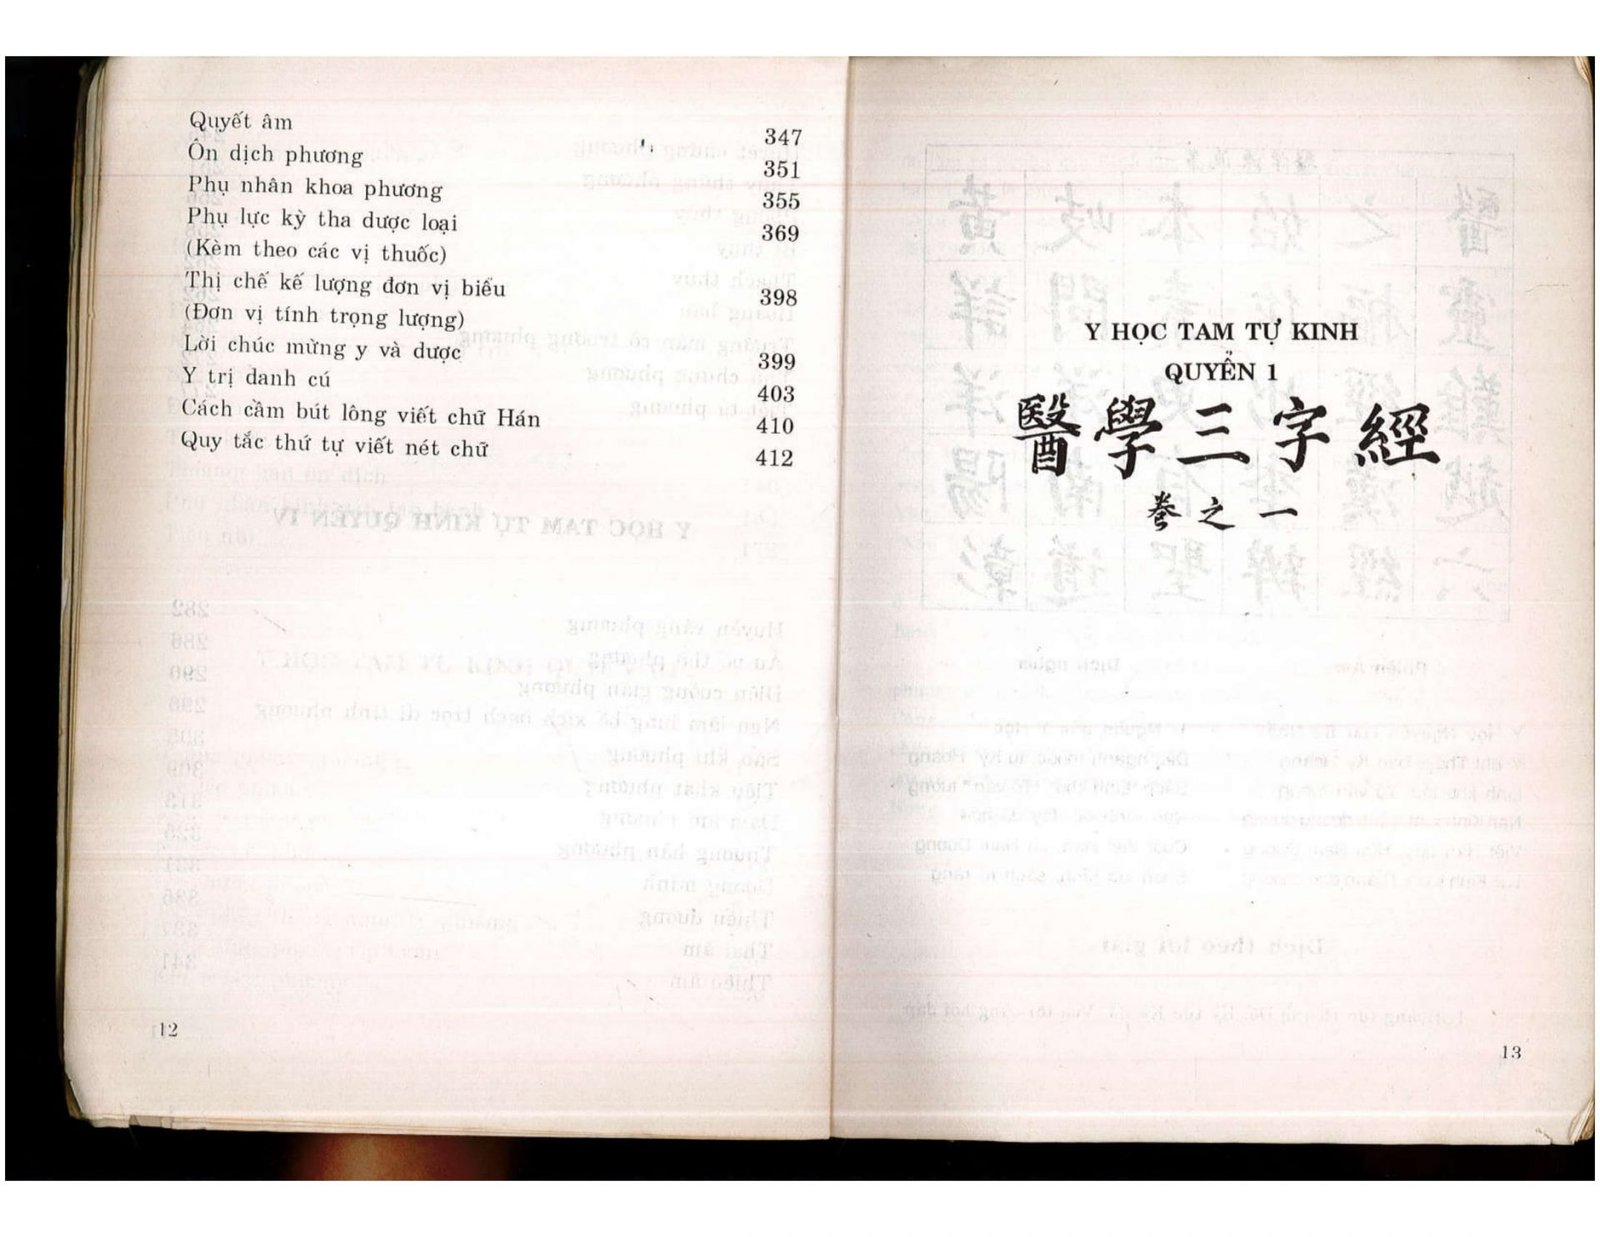 Quyết âm 347
Ôn dịch phương 351
Phụ nhân khoa phương 355
Phụ lực kỳ tha dược loại 369
(Kèm theo các vị thuốc)
Thị chế kế lượng đơn vị biểu 398
(Đơn vị tính trọng lượng)
Lời chúc mừng y và dược 399
Y trị danh cú 403
Cách cầm bút lông viết chữ Hán 410
Quy tắc thứ tự viết nét chữ 412
12
Y HỌC TAM TỰ KINH
QUYỂN 1
醫學三字經
卷之一
13